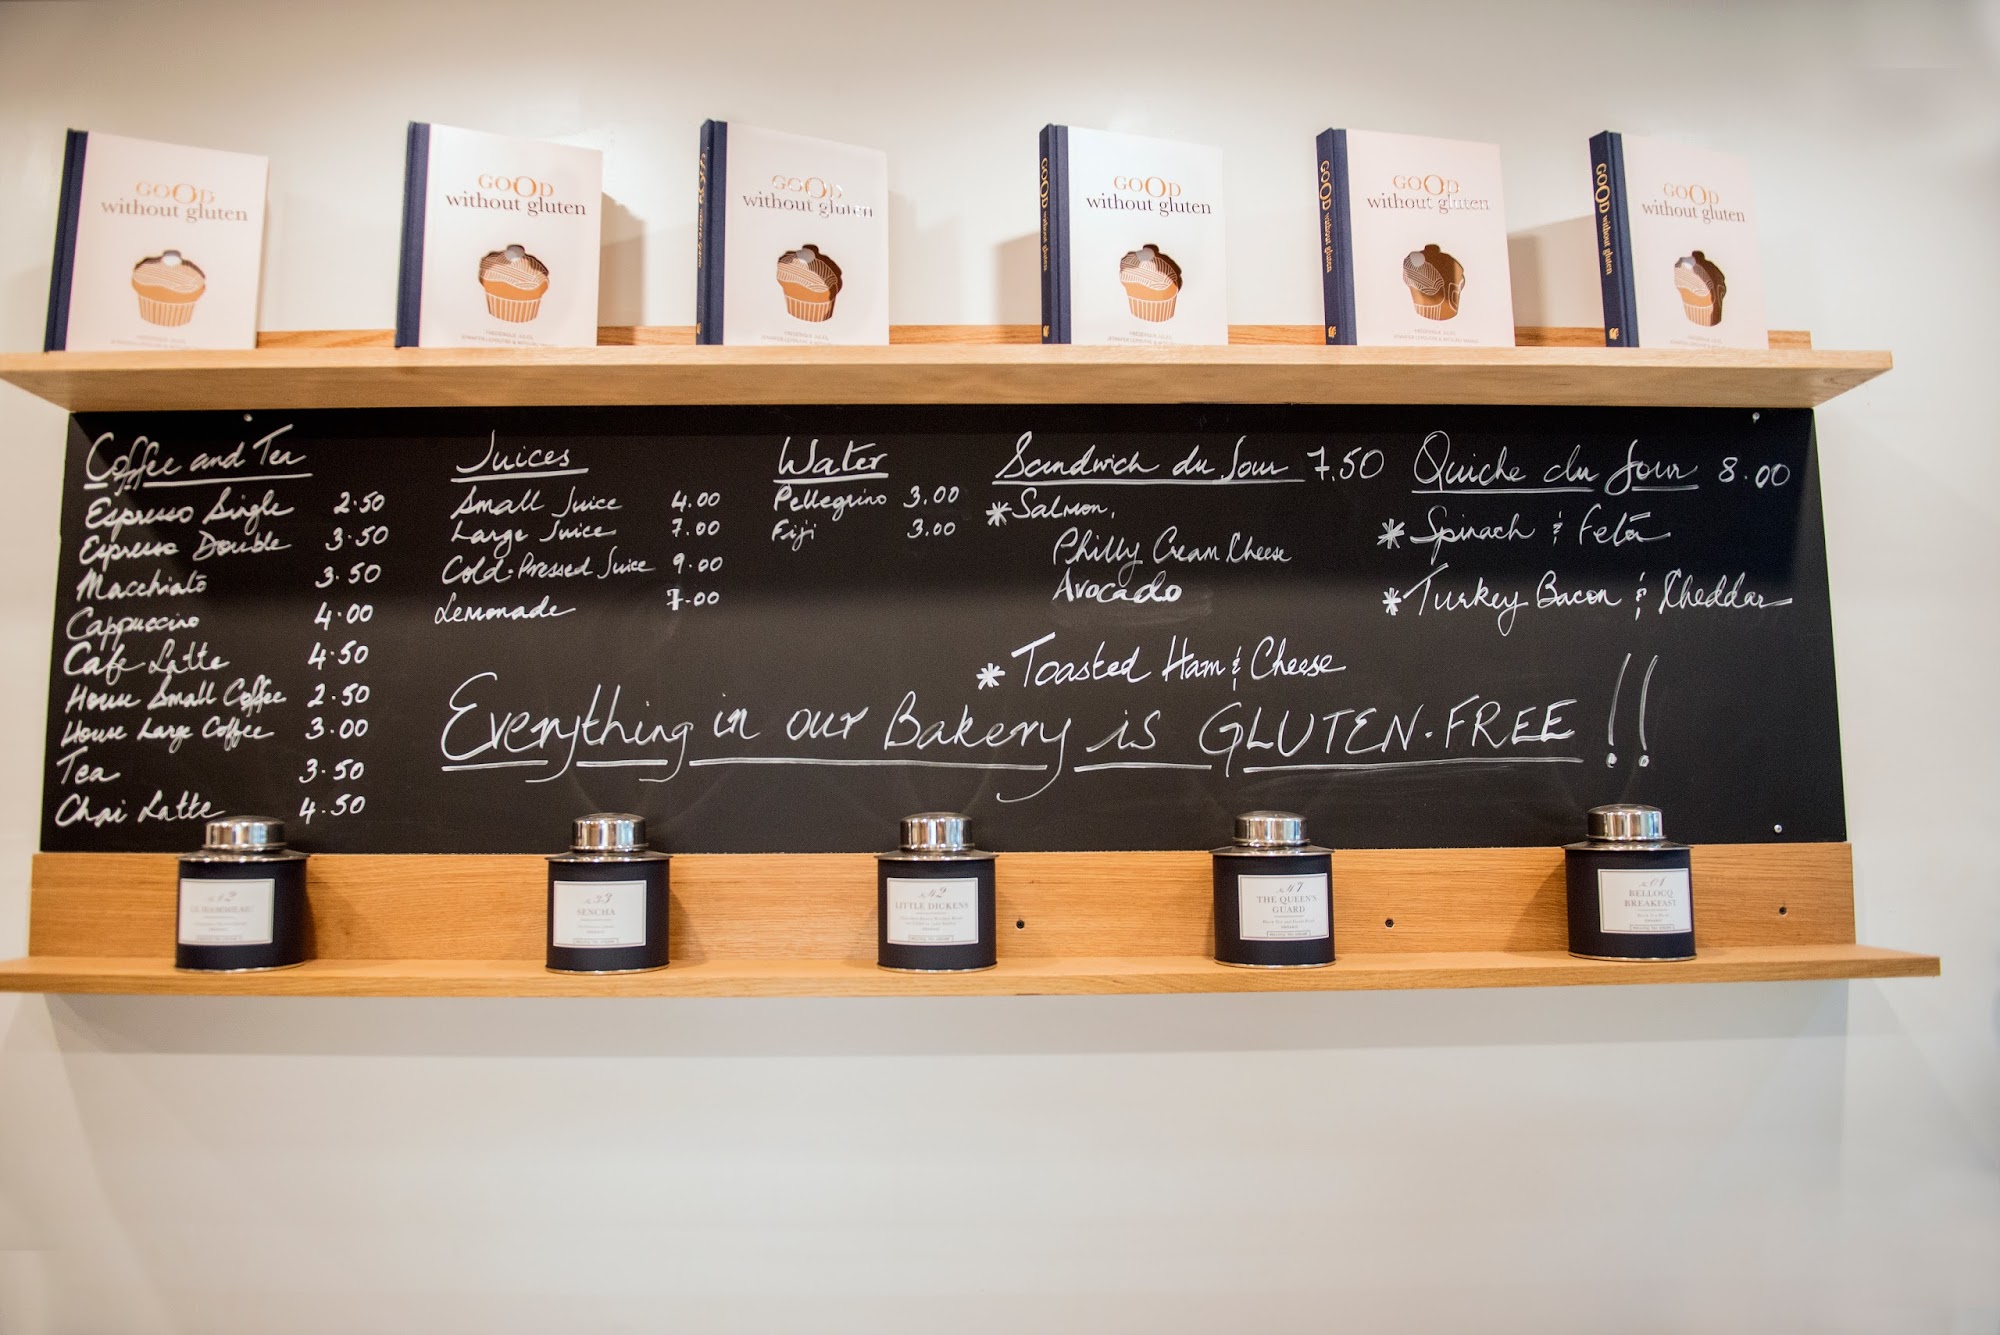 GOOD
without gluten
GOOD
without gluten
FRÉDÉRIQUE JULES
GOOD
without gluten
FRÉDÉRIQUE JULES
GOOD without gluten
GOOD
without gluten
FRÉDÉRIQUE JULES
GOOD without gluten
GOOD
without gluten
FRÉDÉRIQUE JULES
GOOD without gluten
GOOD
without gluten
Coffee and Tea
Espresso Single 2.50
Espresso Double 3.50
Macchiato 3.50
Cappuccino 4.00
Cafe Latte 4.50
House Small Coffee 2.50
House Large Coffee 3.00
Tea 3.50
Chai Latte 4.50
Juices
Small Juice 4.00
Large Juice 7.00
Cold-Pressed Juice 9.00
Lemonade 7.00
Water
Pellegrino 3.00
Fiji 3.00
Sandwich du Jour 7.50
* Salmon,
Philly Cream Cheese
Avocado
* Toasted Ham & Cheese
Quiche du Jour 8.00
* Spinach & Feta
* Turkey Bacon & Cheddar
Everything in our Bakery is GLUTEN-FREE !!
No 12
No 33
SENCHA
No 42
LITTLE DICKENS
No 47
THE QUEEN'S
GUARD
No 01
BELLOCQ
BREAKFAST